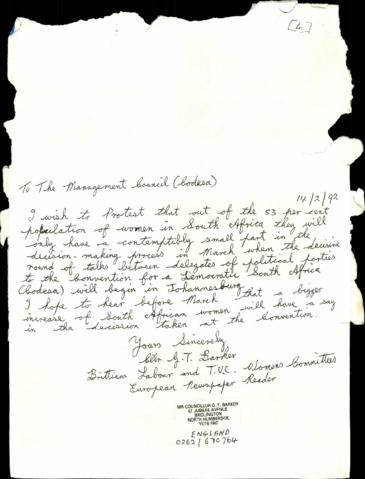 [4]
To The Management Council (Codesa)
14/2/92
I wish to Protest that out of the 53 per cent
population of women in South Africa they will
only have a contemptibly small part in the
decision-making process in March when the decisive
round of talks between delegates of political parties
to the Convention for a Democratic South Africa
(Codesa) will begin in Johannesburg.
I hope to hear before March that a bigger
increase of South African women will have a say
in the decission taken at the Convention.
Yours Sincerely
Cllr G.T. Barker
Brittians Labour and T.U.C. Womens Committees
European Newspaper Reader
MR COUNCILLOR G. T. BARKER
67 JUBILEE AVENUE
BRIDLINGTON
NORTH HUMBERSIDE
ENGLAND
0262/670764